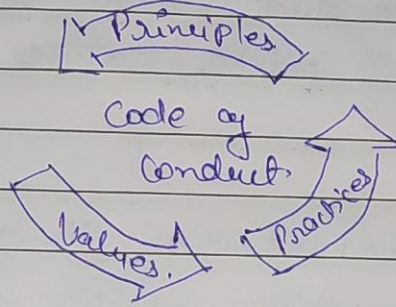 Principles
Code of
Conduct.
Values.
Practices